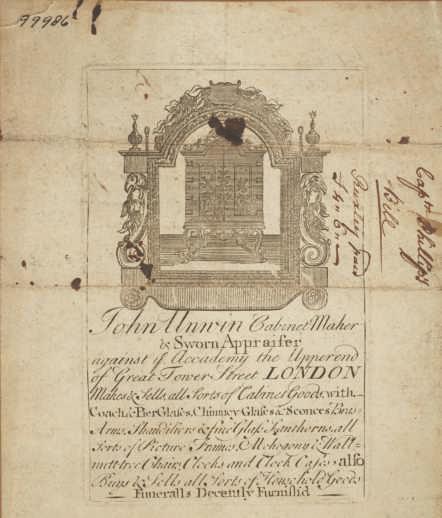 99986
John Unwin Cabinet Maker
& Sworn Appraiser
against ye. Accademy the Upper end
of Great Tower Street LONDON
Makes & Sells, all Sorts of Cabinet Goods, with
Coach & Pier Glases, Chimney Glases & Sconces, Bras
Arms, Shandiliers & fine Glass Lanthorns, all
Sorts of Picture Frames, Mehogony & Wall-
nuttree Chairs, Clocks and Clock Cases, also
Buys & Sells all Sorts of Household Goods
Funeralls Decently Furnish'd
Capt. Phillips
Bill